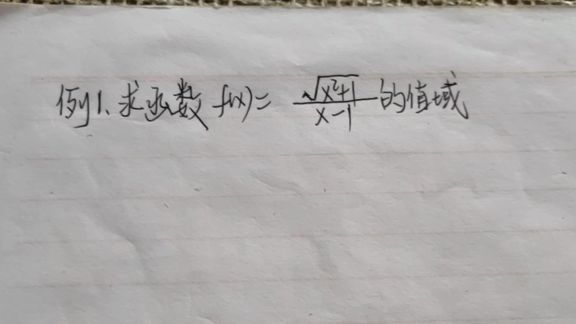 例1、求函数 f(x)= √(x²+1)/(x-1) 的值域